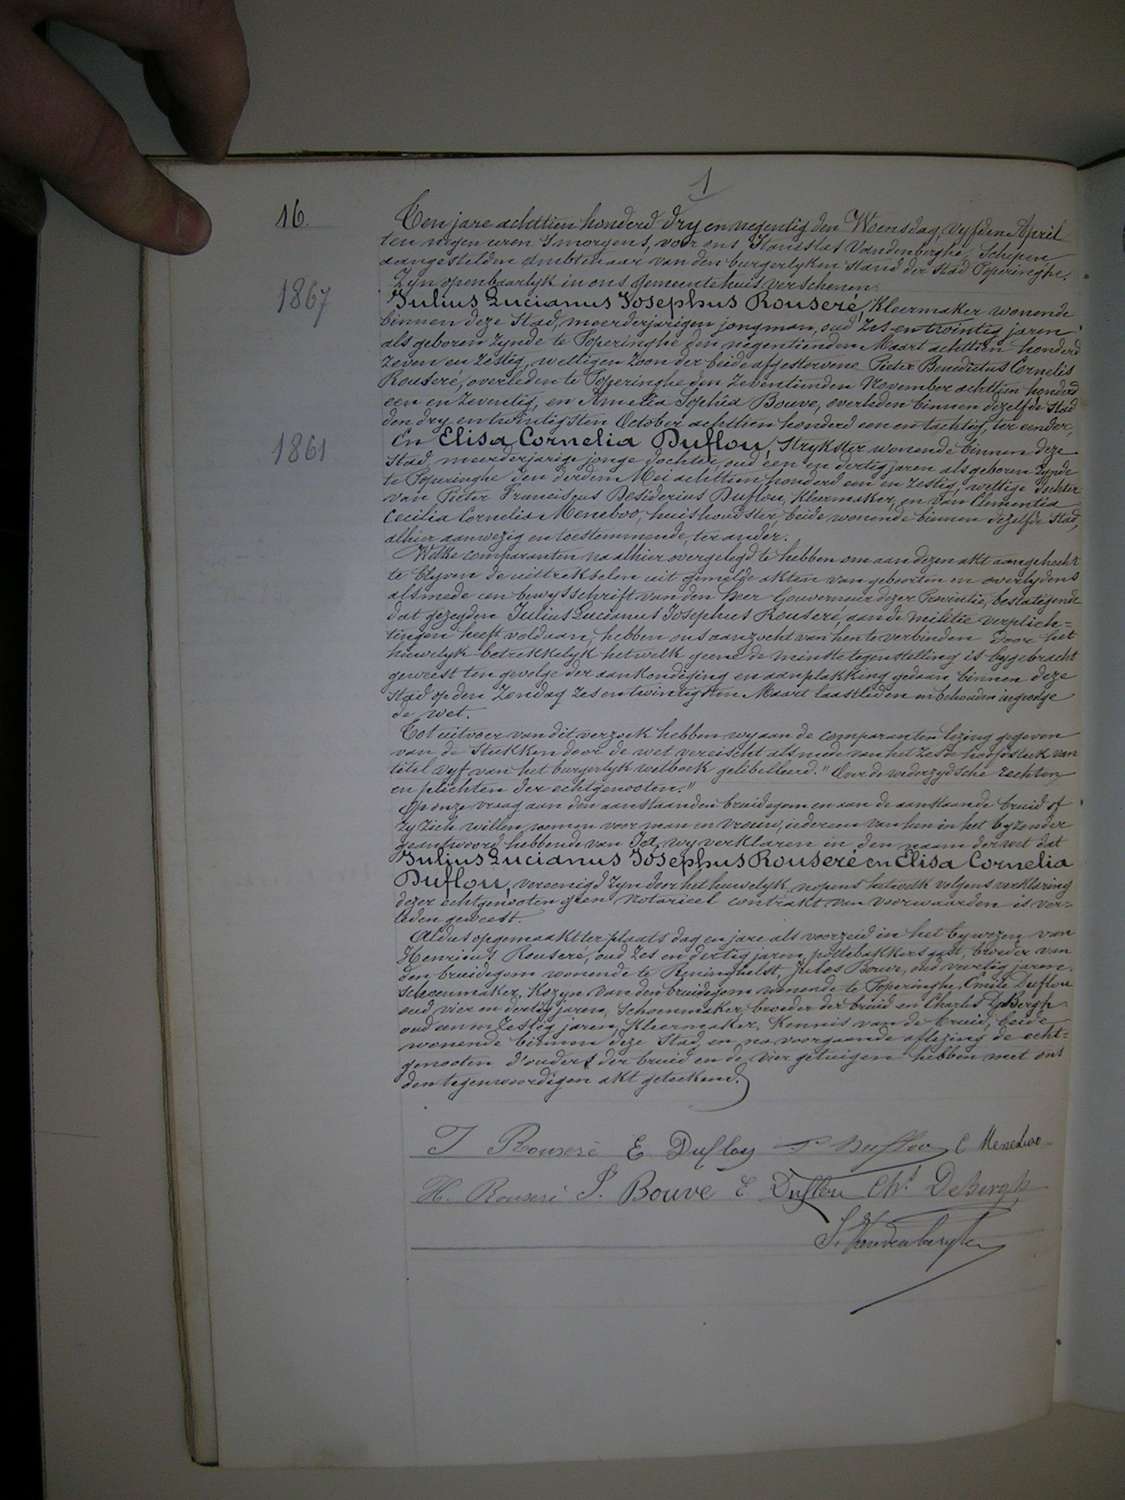 1
16.
Ten jare achttien honderd dry en negentig den Woensdag, vyfden April
ten negen uren s'morgens, voor ons Stanislas Vandenberghe, Schepen
aangestelden ambtenaar van den burgerlyken stand der stad Poperinghe,
Zyn openbaarlyk in ons gemeentehuis verschenen
1867
Julius Lucianus Josephus Rouseré, Kleermaker wonende
binnen deze Stad, meerderjarigen jongman, oud zes en twintig jaren
als geboren zynde te Poperinghe den negentienden Maart achttien honderd
zeven en zestig, wettigen zoon der beide afgestorvene Pieter Benedictus Cornelis
Rouseré, overleden te Poperinghe den zeventienden November achttien honderd
een en zeventig, en Amelia Sophia Bouve, overleden binnen dezelfde Stad
den dry en twintigsten October achttien honderd een en tachtig, ter eender,
1861
En Elisa Cornelia Duflou, Strykster wonende binnen deze
Stad, meerderjarige jonge dochter oud een en dertig jaren als geboren zynde
te Poperinghe den derden Mei achttien honderd een en zestig, wettige dochter
van Pieter Franciscus Desiderius Duflou, Kleermaker, en van Clementia
Cecilia Cornelia Meneboo, huishoudster, beide wonende binnen dezelfde Stad,
alhier aanwezig en toestemmende ter ander.
Welke comparanten na alhier overgelegd te hebben om aan dezen akt aangehecht
te blyven de uittrekselen uit gemelde akten van geboorten en overlydens
alsmede een bewysschrift van den heer Gouverneur dezer Provintie, bestatigende
dat gezegden Julius Lucianus Josephus Rouseré, aan de militie verplich=
tingen heeft voldaan, hebben ons aanzocht van hen te verbinden door het
huwelyk betrekkelyk hetwelk geene de minste tegenstelling is bygebracht
geweest ten gevolge der aankondiging en aanplakking gedaan binnen deze
Stad op den Zondag zes en twintigsten Maart laatstleden en behouden ingevolge
de wet.
Tot uitvoer van dit verzoek hebben wy aan de comparanten lezing gegeven
van de stukken door de wet vereischt alsmede van het zesde hoofdstuk van
titel vyf van het burgerlyk wetboek getitelleerd "Over de wederzydsche rechten
en plichten der echtgenooten."
Op onze vraag aan den aanstaanden bruidegom en aan de aanstaande bruid of
zy zich willen nemen voor man en vrouw, iedereen van hen in het byzonder
geantwoord hebbende van Ja, wy verklaren in den naam der wet dat
Julius Lucianus Josephus Rouseré en Elisa Cornelia
Duflou, vereenigd zyn door het huwelyk, nopens hetwelk volgens verklaring
dezer echtgenooten geen notarieel contrakt van voorwaarden is ver=
leden geweest.
Aldus opgemaakt ter plaats dag en jare als voorzeid in het bywezen van
Henricus Rouseré, oud zes en dertig jaren, pottebakkersgast, broeder van
den bruidegom wonende te Reninghelst, Jules Bouve, oud veertig jaren,
schoenmaker, Kozyn van den bruidegom wonende te Poperinghe, Emile Duflou
oud vier en dertig jaren, Schoenmaker, broeder der bruid en Charles DeBergh
oud een en zestig jaren, Kleermaker, Kennis van de bruid, beide
wonende binnen deze Stad, en na voorgaande aflezing de echt=
genooten d'ouders der bruid en de vier getuigen hebben met ons
den tegenwoordigen akt geteekend.
J Rouseré E. Duflou P. Duflou C Meneboo
H. Rouseré J. Bouve E Duflou Chs DeBergh
S. Vandenberghe